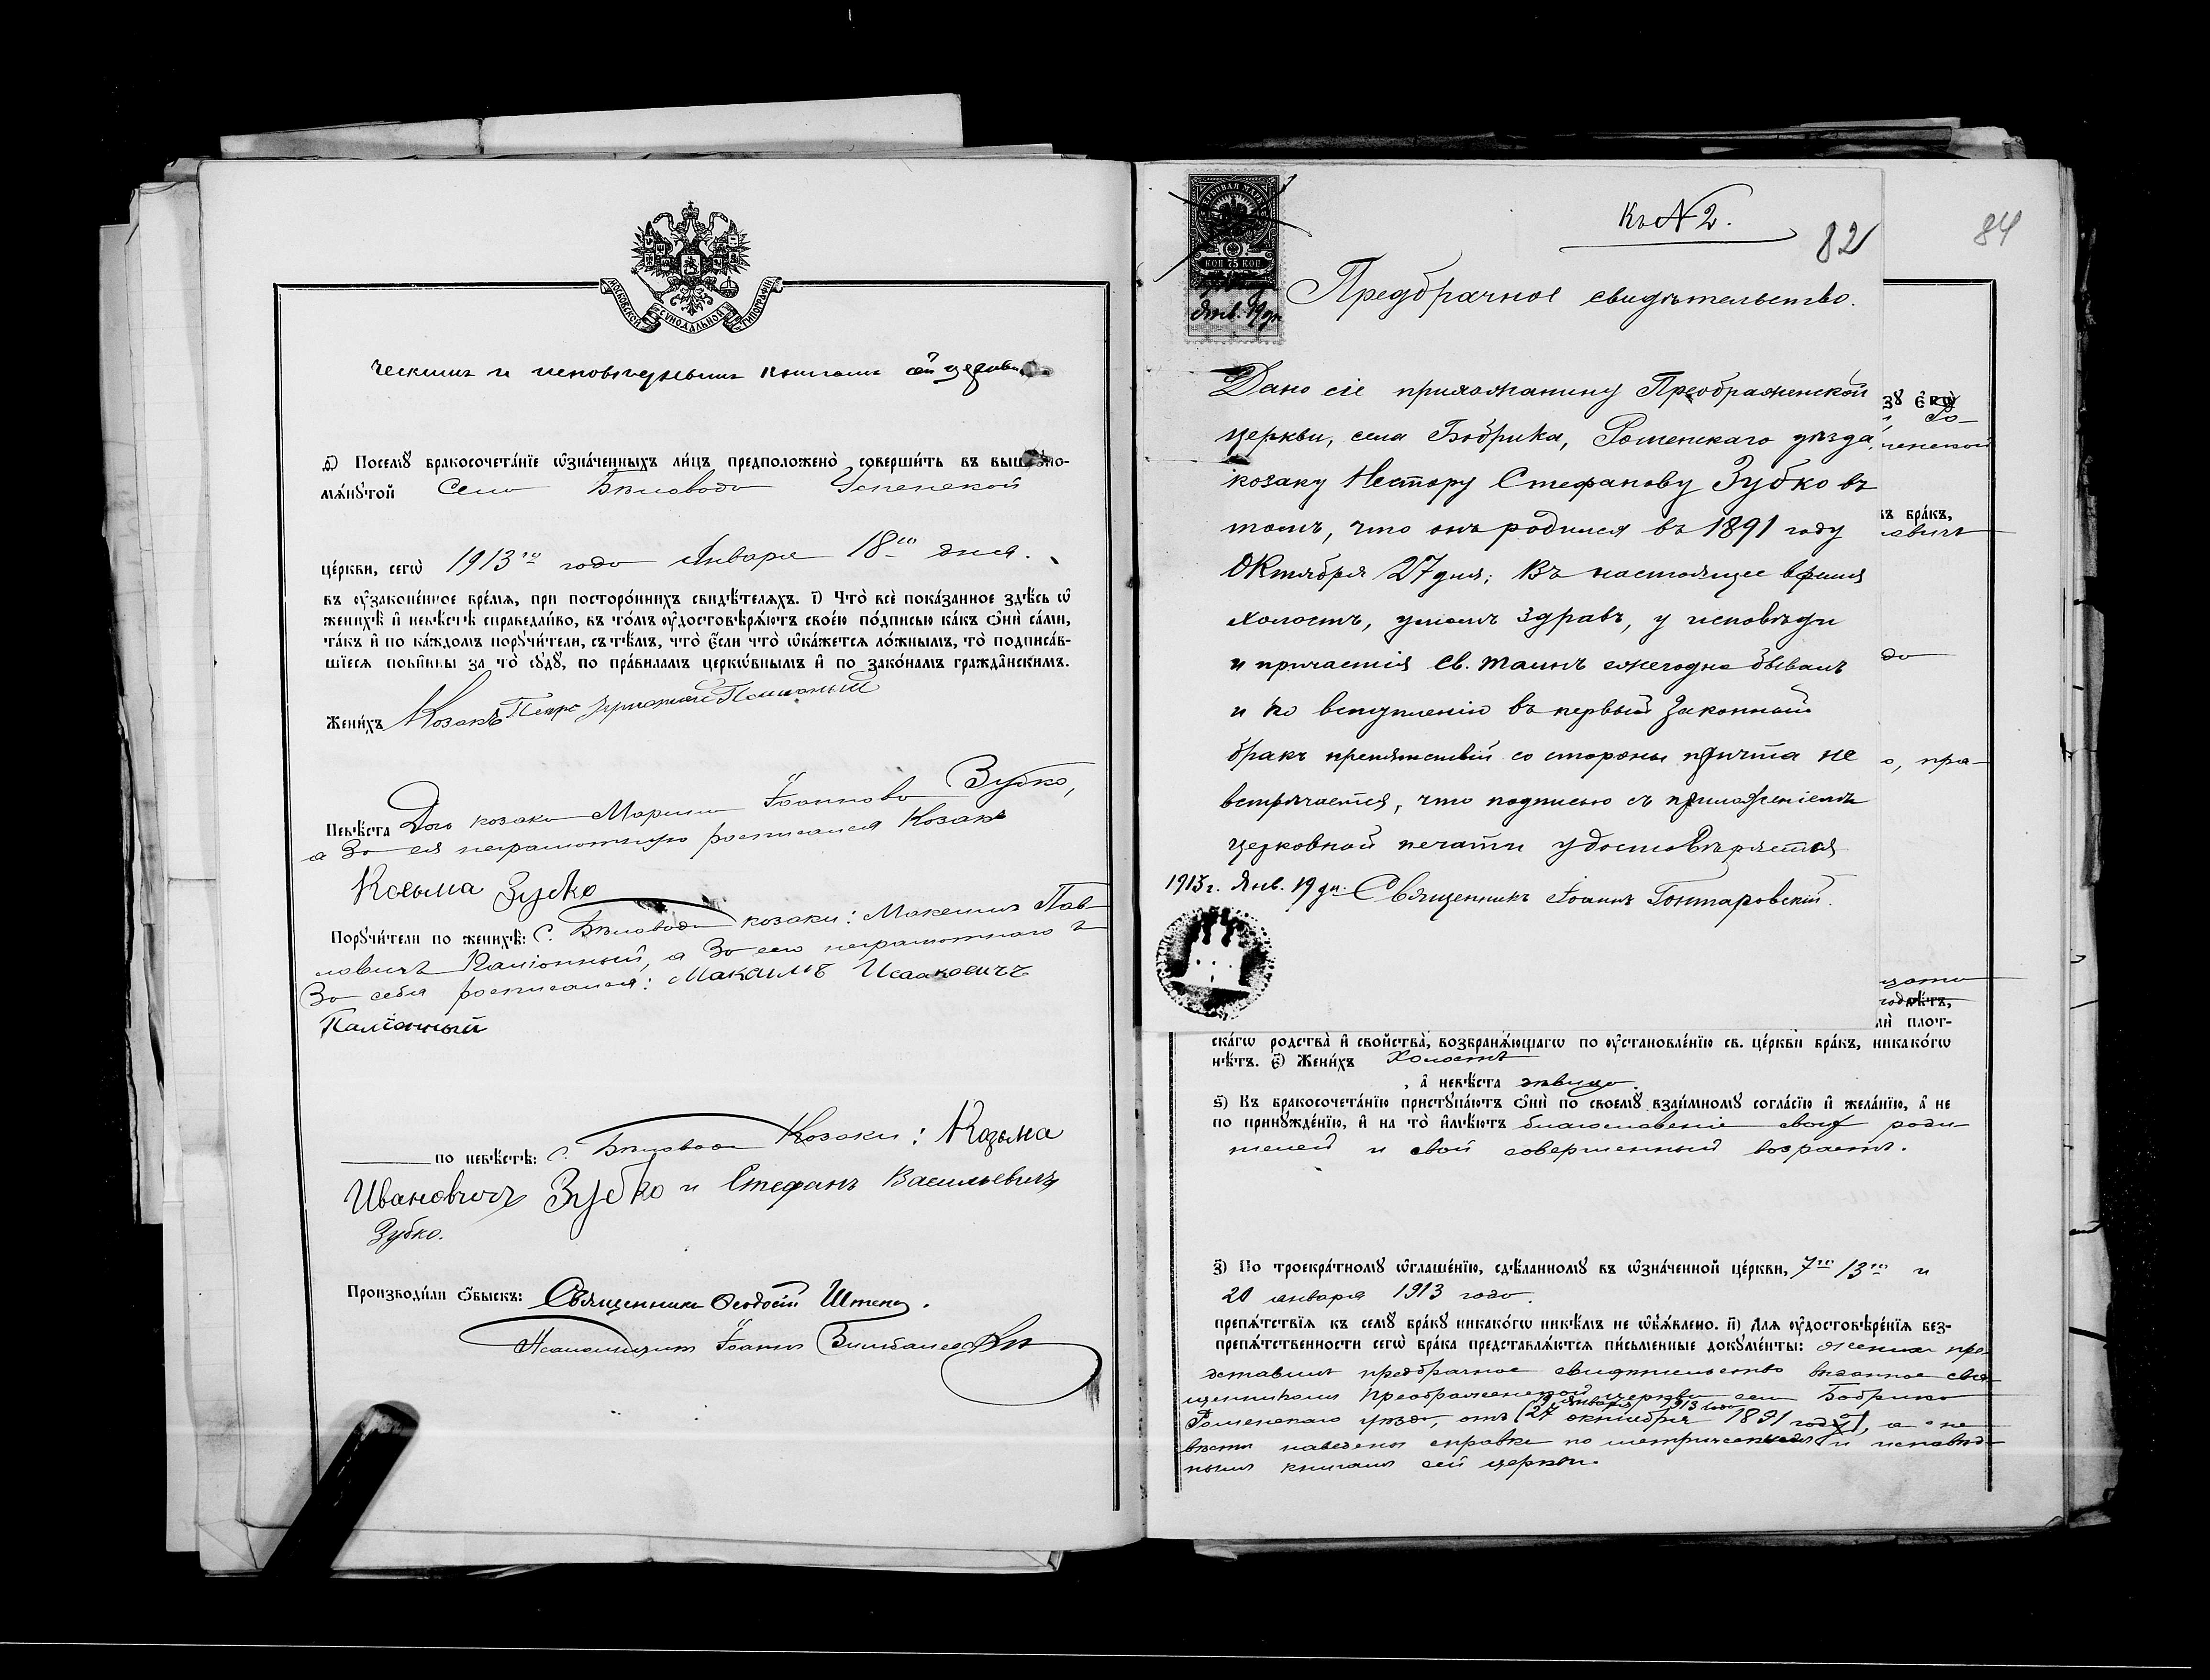 МОСКОВСКОЙ СѴНОДАЛЬНОЙ ТИПОГРАФІИ
ческимъ и исповѣднымъ книгамъ сей церкви.
д҃) Посемꙋ̀ бракосочета́нїе ѡ҆зна́ченныхъ ли́цъ предположено̀ соверши́ть въ вышепо-
мѧ́нꙋтой Села Бѣловода Успенской
це́ркви, сегѡ̀ 1913го года Января 18го дня.
въ ᲂу҆зако́ненное вре́мѧ, при посторо́ннихъ свидѣ́телѧхъ. і҃) Что̀ всѐ пока́занное здѣ́сь ѡ҆
женихѣ̀ и҆ невѣ́стѣ справедли́во, въ то́мъ ᲂу҆достовѣрѧ́ютъ свое́ю по́дписью ка́къ ѻ҆нѝ са́ми,
та́къ и҆ по ка́ждомъ порꙋчи́тели, съ тѣ́мъ, что̀ є҆́сли что̀ ѡ҆ка́жетсѧ ло́жнымъ, то̀ подписа́в-
шїесѧ пови́нны за то̀ сꙋдꙋ̀, по пра́виламъ церкѡ́внымъ и҆ по зако́намъ гражда́нскимъ.
Жени́хъ Козакъ Петръ
Невѣ́ста Дочь козака Марина Іоаннова Зубко,
а за ея неграмотную росписался Козакъ
Козьма Зубко
Порꙋчи́тели по женихѣ̀: С. Бѣловода козаки: Максимъ Пав-
ловичъ Палїонный, а за его неграмотного и
За себя росписался: Максимъ Исааковичъ
Палїонный
по невѣ́стѣ: С. Бѣловода Козаки: Козьма
Ивановичъ Зубко и Стефанъ Васильевичъ
Зубко.
Производи́ли ѻ҆́быскъ: Священникъ Ѳеодосій
Псаломщикъ Іоаннъ
Къ № 2.
82
84
ГЕРБОВАЯ МАРКА
КОП 75 КОП
Янв. 19 дн.
Предбрачное свидѣтельство.
Дано сіе прихожанину Преображенской
церкви, села Бобрика, Роменскаго уѣзда,
козаку Нестору Стефанову Зубко въ
томъ, что онъ родился въ 1891 году
Октября 27 дня; въ настоящее время
холостъ, умомъ здравъ, у исповѣди
и причастія Св. Таинъ ежегодно бывалъ
и ко вступленію въ первый законный
бракъ препятствій со стороны причта не
встрѣчается, что подписью съ приложеніемъ
церковной печати удостовѣряется
1913 г. Янв. 19 дн. Священникъ Іоаннъ Гонтаровскій.
зꙋ є҆гѡ̀
Ро-
менской
въ бра́къ,
да
о, пра-
лѝ плот-
ска́гѡ родства̀ и҆ сво́йства, возбранѧ́ющагѡ по ᲂу҆становле́нїю св. це́ркви бра́къ, никако́гѡ
нѣ́тъ. є҃) Жени́хъ холостъ
, а҆ невѣ́ста дѣвица.
ѕ҃) Къ бракосочета́нїю пристꙋпа́ютъ ѻ҆нѝ по своемꙋ̀ взаи́мномꙋ согла́сїю и҆ жела́нїю, а҆ не
по принꙋжде́нїю, и҆ на то̀ и҆мѣ́ютъ благословеніе своихъ роди-
телей и свой совершенный возрастъ.
з҃) По троекра́тномꙋ ѡ҆глаше́нїю, сдѣ́ланномꙋ въ ѡ҆зна́ченной це́ркви, 7го 13го и
20 января 1913 года.
препѧ́тствїѧ къ семꙋ̀ бра́кꙋ никако́гѡ никѣ́мъ не ѡ҆б̾ѧ́влено. и҃) Длѧ ᲂу҆достовѣре́нїѧ без-
препѧ́тственности сегѡ̀ бра́ка представлѧ́ютсѧ пи́сьменные докꙋме́нты: жених пре-
дставилъ предбрачное свидѣтельство выданное свя-
щенникомъ Преображенской церкви села Бобрика
19 января 1913 года
Роменскаго уѣзда, отъ (27 октября 1891 года), а о не-
вѣстѣ наведены справки по метрическимъ и исповѣд-
нымъ книгамъ сей церкви.